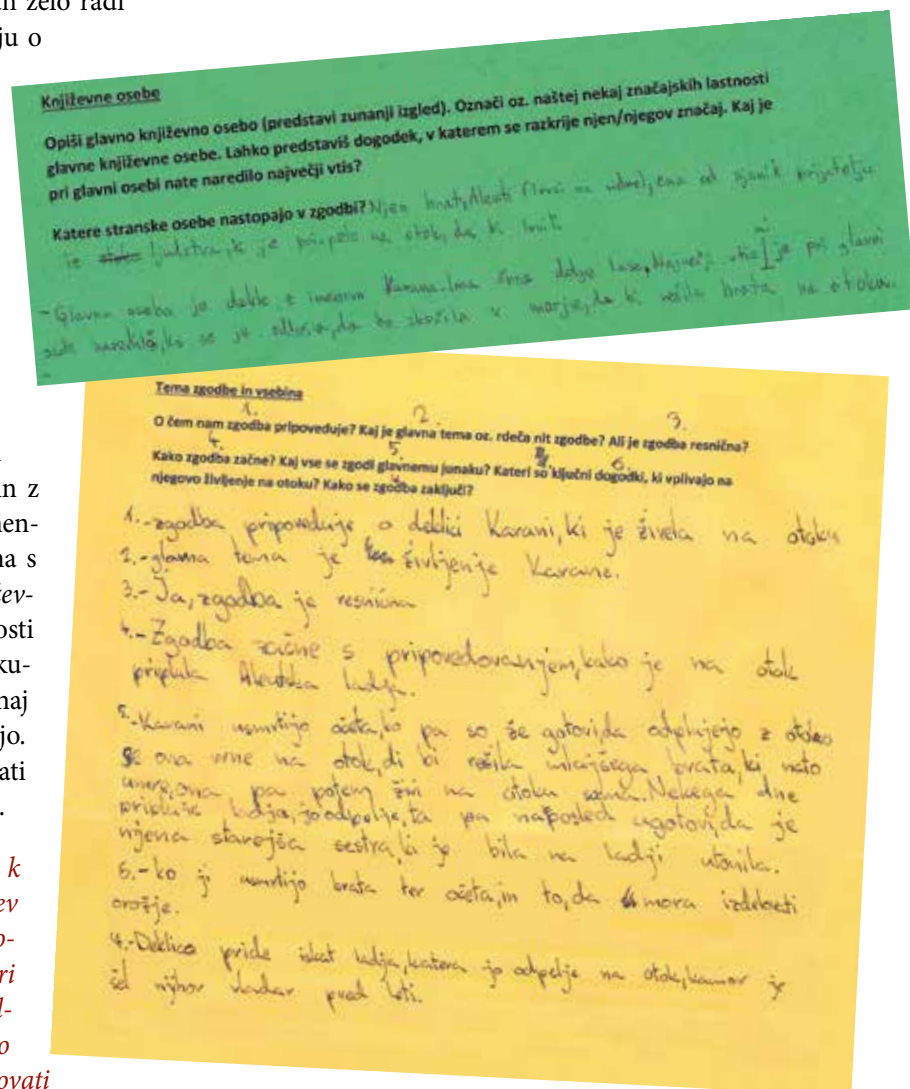 zelo radi
ju o
Književne osebe
Opiši glavno književno osebo (predstavi zunanji izgled). Označi oz. naštej nekaj značajskih lastnosti
glavne književne osebe. Lahko predstaviš dogodek, v katerem se razkrije njen/njegov značaj. Kaj je
pri glavni osebi nate naredilo največji vtis?
Katere stranske osebe nastopajo v zgodbi? Njen brat, Aleuti in ena od njenih prijateljic
je ljudstva, ki je priplulo na otok, da bi lovil
- Glavna oseba je dekle z imenom Karana. Ima črne dolge lase. Največji vtis je pri glavni
osebi naredilo, ko se je odločila, da bo skočila v morje, da bi rešila brata na otoku.
in z
men-
na s
žev-
osti
ku-
naj
jo.
ati
.
k
ev
o-
ri
l-
o
ovati
Tema zgodbe in vsebina
1. 2. 3.
O čem nam zgodba pripoveduje? Kaj je glavna tema oz. rdeča nit zgodbe? Ali je zgodba resnična?
4. 5. 6.
Kako zgodba začne? Kaj vse se zgodi glavnemu junaku? Kateri so ključni dogodki, ki vplivajo na
njegovo življenje na otoku? Kako se zgodba zaključi?
1.-zgodba pripoveduje o deklici Karani, ki je živela na otoku
2.-glavna tema je življenje Karane.
3.-Ja, zgodba je resnična
4.-Zgodba začne s pripovedovanjem, kako je na otok
priplula Aleutska ladja.
5.-Karani usmrtijo očeta, ko pa so že gotovi, da odplujejo z otoka
se ona vrne na otok, di bi rešila mlajšega brata, ki nato
umre, ona pa potem živi na otoku sama. Nekega dne
pripluje ladja, jo odpelje, ta pa naposled ugotovi, da je
njena starejša sestra, ki je bila na ladji utonila.
6.-ko ji usmrtijo brata ter očeta, in to, da mora izdelati
orožje.
4.-Deklico pride iskat ladja, katera jo odpelje na otok, kamor je
šel njihov vladar pred leti.